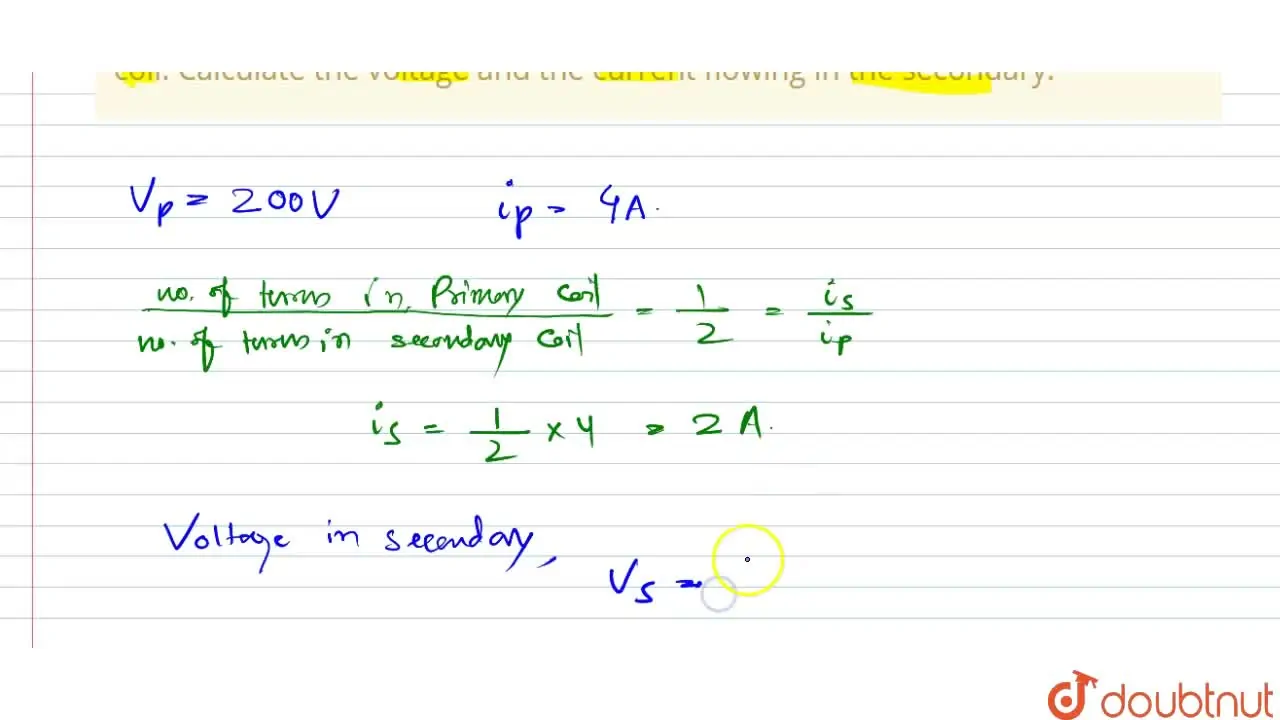 coil. Calculate the voltage and the current flowing in the secondary.
Vp = 200V ip = 4A.
no. of turns in Primary coil / no. of turns in secondary coil = 1/2 = is/ip
is = 1/2 × 4 = 2 A.
Voltage in secondary,
Vs =
doubtnut